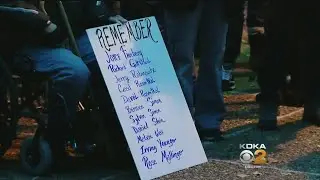 REMEMBER
Joyce Fienberg
Richard Gottfried
Jerry Rabinowitz
Cecil Rosenthal
David Rosenthal
Bernice Simon
Sylvan Simon
Daniel Stein
Melvin Wax
Irving Younger
Rose Mallinger
KDKA
CBS 2